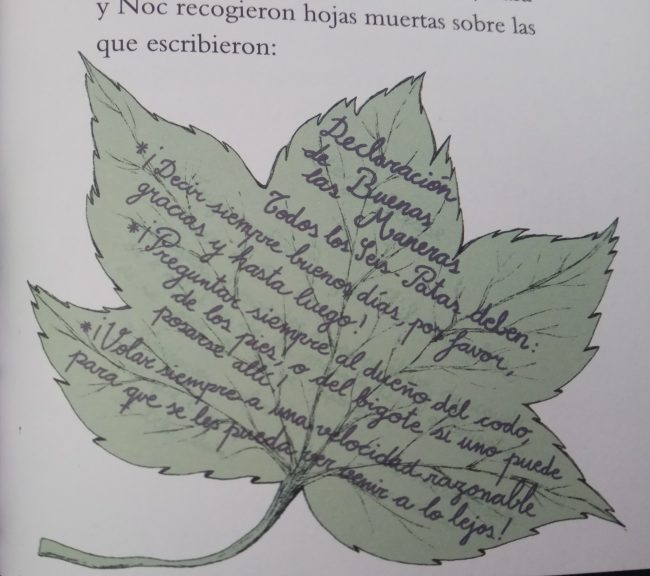 y Noc recogieron hojas muertas sobre las
que escribieron:
Declaración
de Buenas
las Maneras
Todos los Seis Patas deben:
*¡Decir siempre buenos días, por favor,
gracias y hasta luego!
*¡Preguntar siempre al dueño del codo,
de los pies, o del bigote si uno puede
posarse allí!
*¡Volar siempre a una velocidad razonable
para que se les pueda ver venir a lo lejos!